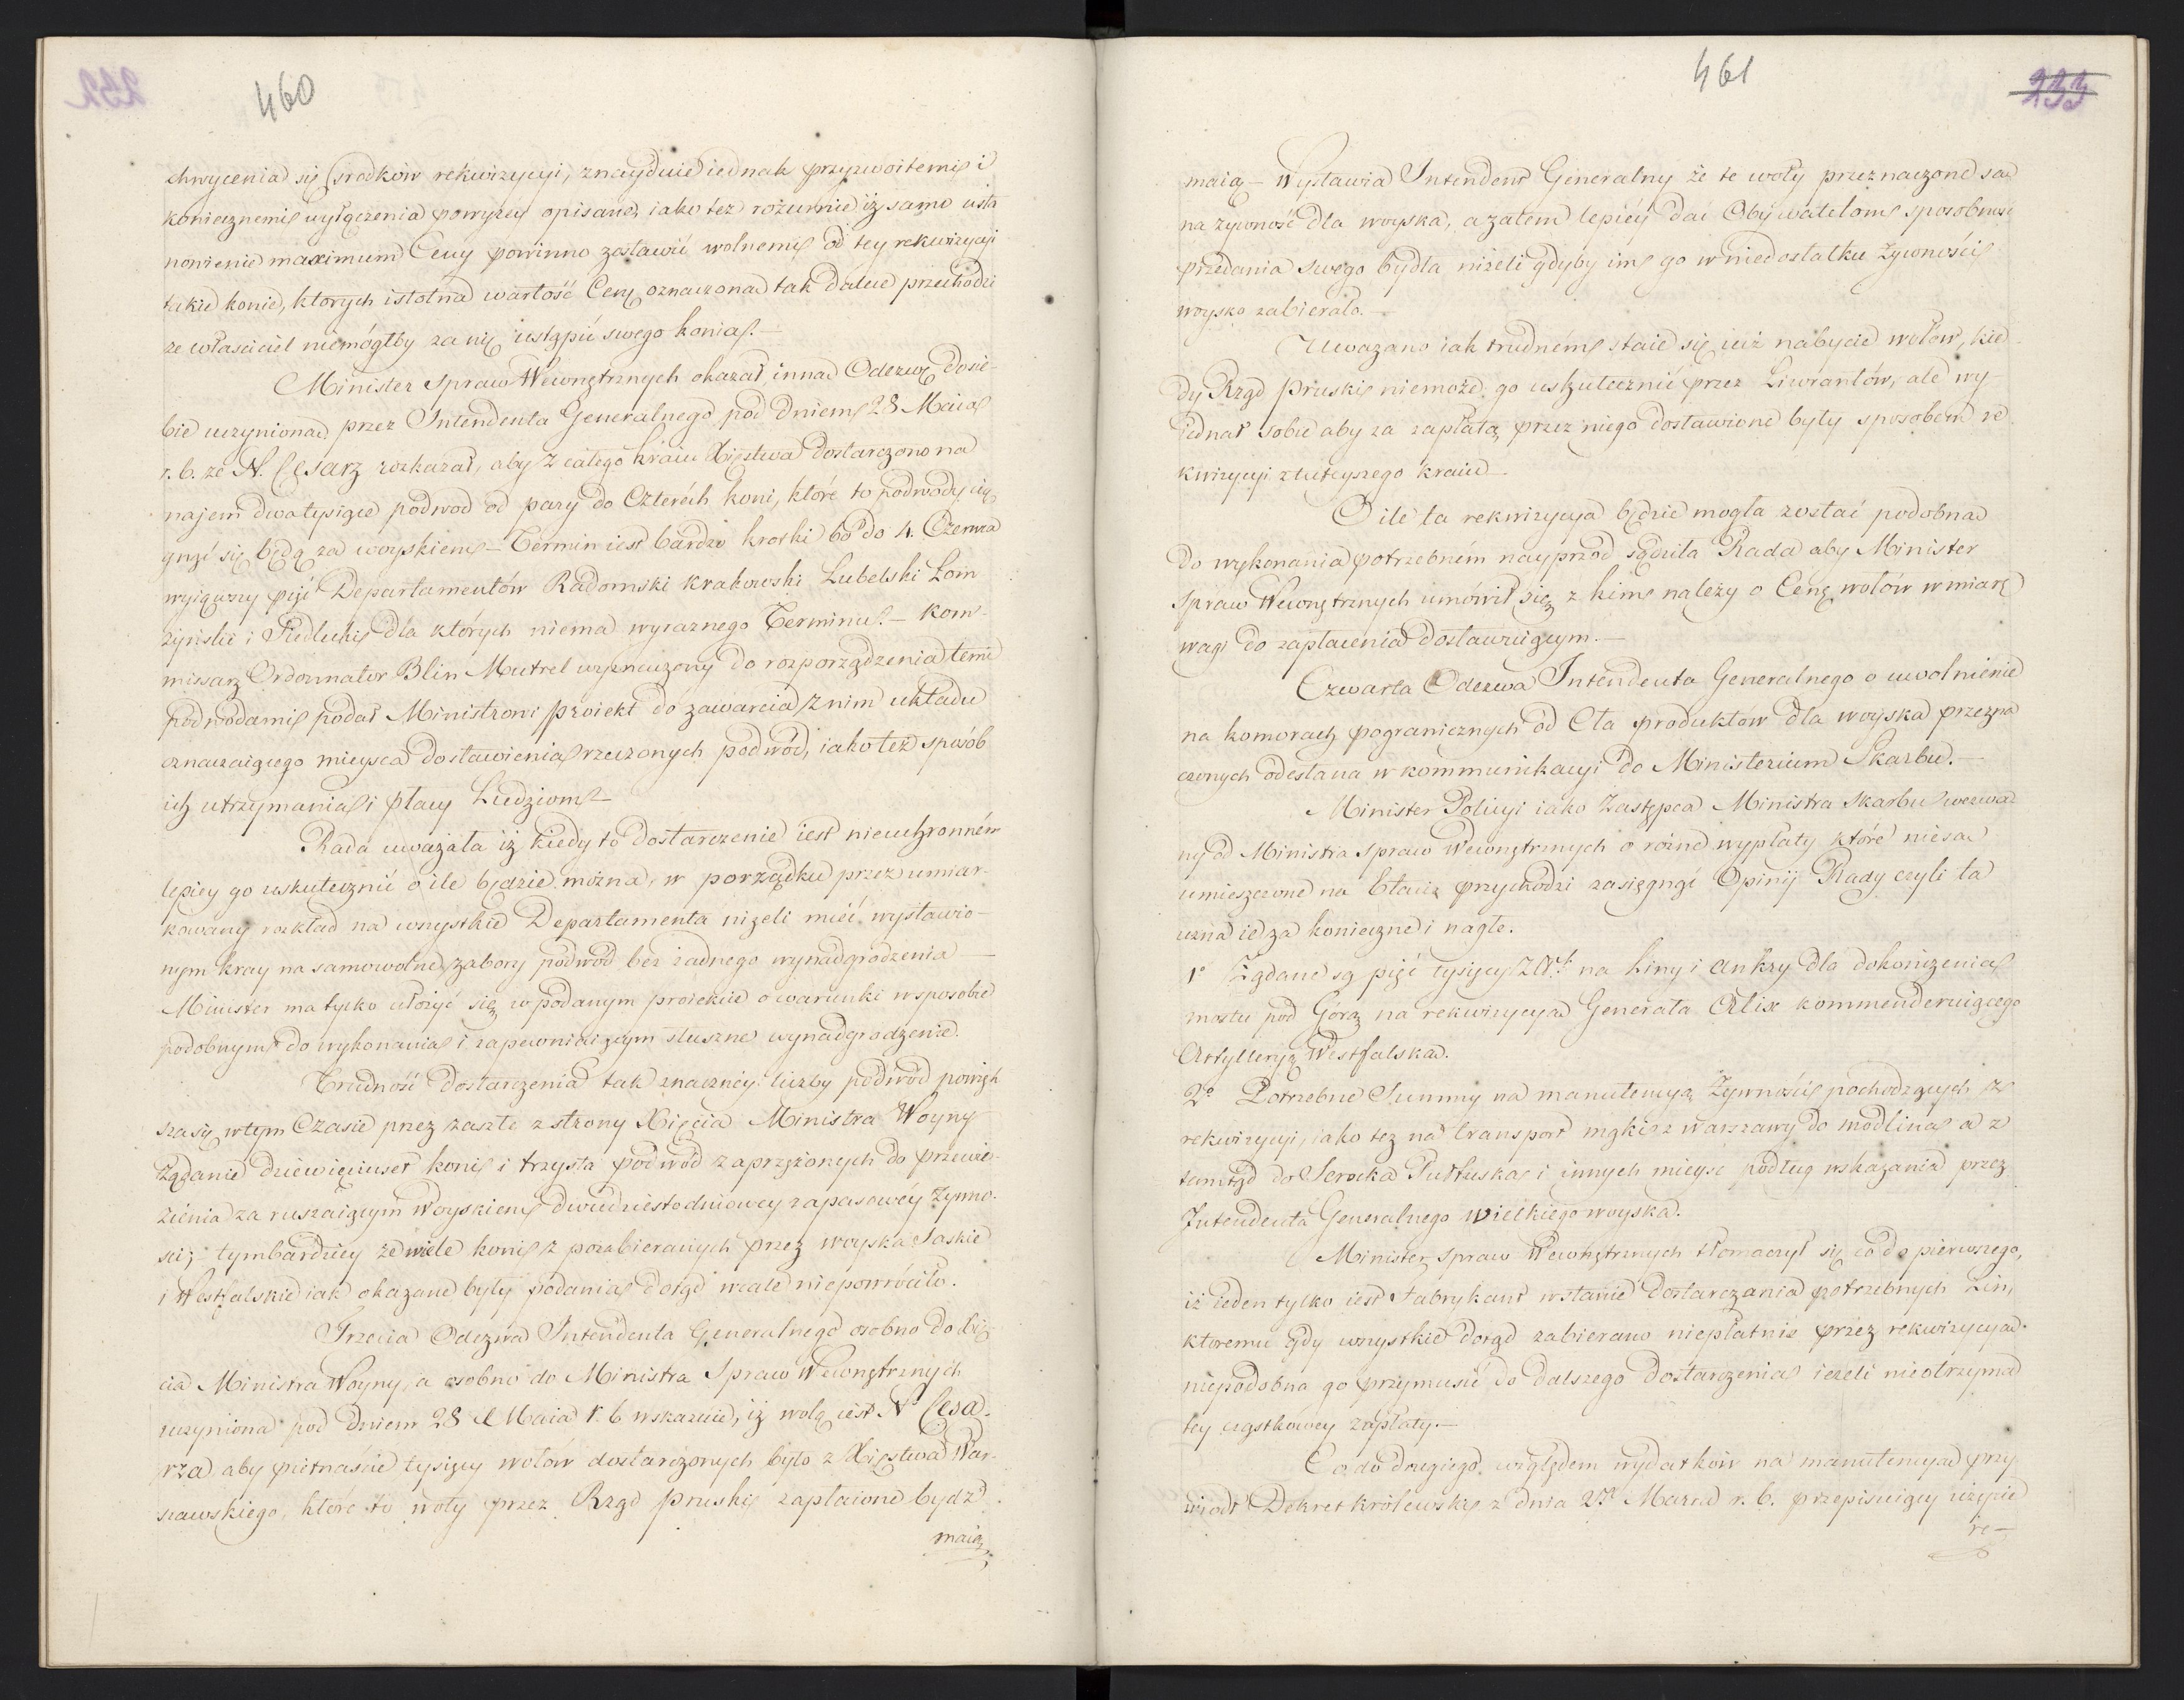 460
chwycenia się srodków rekwizycyi, znayduie iednak przyzwoitemi i
koniecznemi wyłączenia powyzey opisane, iako tez rozumie iż samo usta
nowienie maximum Ceny powinno zostawić wolnemi od tey rekwizycyi
takie konie, ktorych istotna wartość Cenę oznaczona tak dalece przechodzi
ze właściciel niemógłby za nię ustąpić swego konia.—
Minister Spraw Wewnętrznych okazał, inna Odezwę do sie-
bie uczyniona przez Intendenta Generalnego pod dniem 28 Maia
r. b. ze N. Cesarz rozkazał, aby z całego kraiu Xięstwa dostarczono na
najem dwa tysiące podwod od pary do Czterech koni, które to podwody cią
gnąć się będą za woyskiem — Termin iest bardzo krotki bo do 4. Czerwca
wyiąwszy pięć Departamentów Radomski Krakowski Lubelski Łom
żyński i Siedlecki dla których niema wyraznego Terminu.— Kom-
missarz Ordonnator Blin Mutrel wyznaczony do rozporządzenia temi
podwodami podał Ministrowi proiekt do zawarcia z nim układu
oznaczaiącego mieysca dostawienia rzeczonych podwód, iako też sposób
ich utrzymania i płacy Ludziom—
Rada uważała iż kiedy to dostarczenie iest nieuchronném
lepiey go uskutecznić o ile będzie można, w porządku przez umiar-
kowany rozkład na wszystkie Departamenta niżeli mieć wystawio-
nym kray na samowolne zabory podwod bez żadnego wynadgrodzenia —
Minister ma tylko ułożyć się w podanym proiekcie o warunki w sposobie
podobnym do wykonania i zapewniaiącym słuszne wynadgrodzenie.
Trudność dostarczenia tak znaczney liczby podwód powięk
sza się w tym Czasie przez zaszłe z strony Xięcia Ministra Woyny
Żądanie dziewięciuset koni i trzysta podwód zaprzężonych do przewie-
zienia za ruszaiącym Woyskiem dwudziestodniowey zapasowéy żywno-
sci; tymbardziey ze wiele koni z pozabieranych przez woyska Saskie
i Westfalskie iak okazane były podania dotąd wcale niepowróciło.
Trzecia Odezwa Intendenta Generalnego osobno do Xię
cia Ministra Woyny, a osobno do Ministra Spraw Wewnętrznych
uczyniona pod Dniem 28 Maia r. b wskazuie, iż wolą iest N. Cesa-
rza aby piętnaście tysięcy wołów dostarczonych było z Xięstwa War-
szawskiego, które to woły przez Rząd pruski zapłacione bydź
maią,
461
233
maią — Wystawia Intendent Generalny że te woły przeznaczone sa
na żywność dla woyska, a zatem lepiéy dać Obywatelom sposobnosć
przedania swego bydła niżeli gdyby im go w niedostatku Żywności
woysko zabierało.—
Uwazano iak trudném staie się ież nabycie wołów, kie-
dy Rząd Pruski niemoże go uskutecznić przez Liwrantów, ale wy-
iednał sobie aby za zapłatą przez niego dostawione były sposobem re
kwizycyi z tuteyszego kraiu—
O ile ta rekwizycya będzie mogła zostać podobna
do wykonania potrzebném nayprzód sądziła Rada aby Minister
Spraw Wewnętrznych umówił się z kim należy o Cenę wołów w miarę
wagi do zapłacenia dostawuiącym.—
Czwarta Odezwa Intendenta Generalnego o uwolnienie
na komorach pogranicznych od Cła produktów dla woyska przezna
czonych odesłana w kommunikacyi do Ministerium Skarbu.—
Minister Policyi iako Zastępca Ministra Skarbu wezwa
ny od Ministra Spraw Wewnętrznych o różne wypłaty które niesa
umieszczone na Etacie przychodzi zasięgnąć Opinij Rady czyli ta
uzna ie za konieczne i nagłe.
1° Żądane są pięć tysięcy Zł. na Liny i ankry dla dokończenia
mostu pod Górą na rekwizycya Generała Alix kommenderuiącego
Artylleryą Westfalska.
2° Potrzebne Summy na manutencyą Żywności pochodzących z
rekwizycyi, iako tez na transport mąki z Warszawy do Modlina a z
tamtąd do Serocka Pułtuska i innych mieysc podług wskazania przez
Intendenta Generalnego wielkiego woyska.
Minister Spraw Wewnętrznych tłomaczył się co do pierwszego,
iż ieden tylko iest Fabrykant w stanie dostarczania potrzebnych Lin,
ktoremu gdy wszystkie dotąd zabierano niepłatnie przez rekwizycya
niepodobna go przymusić do dalszego dostarczenia ieżeli nieotrzyma
tey cząstkowey zapłaty.—
Co do drugiego, względem wydatków na manutencya przy
wiodł Dekret królewski z dnia Marca r. b. przepisuiący użycie
re—